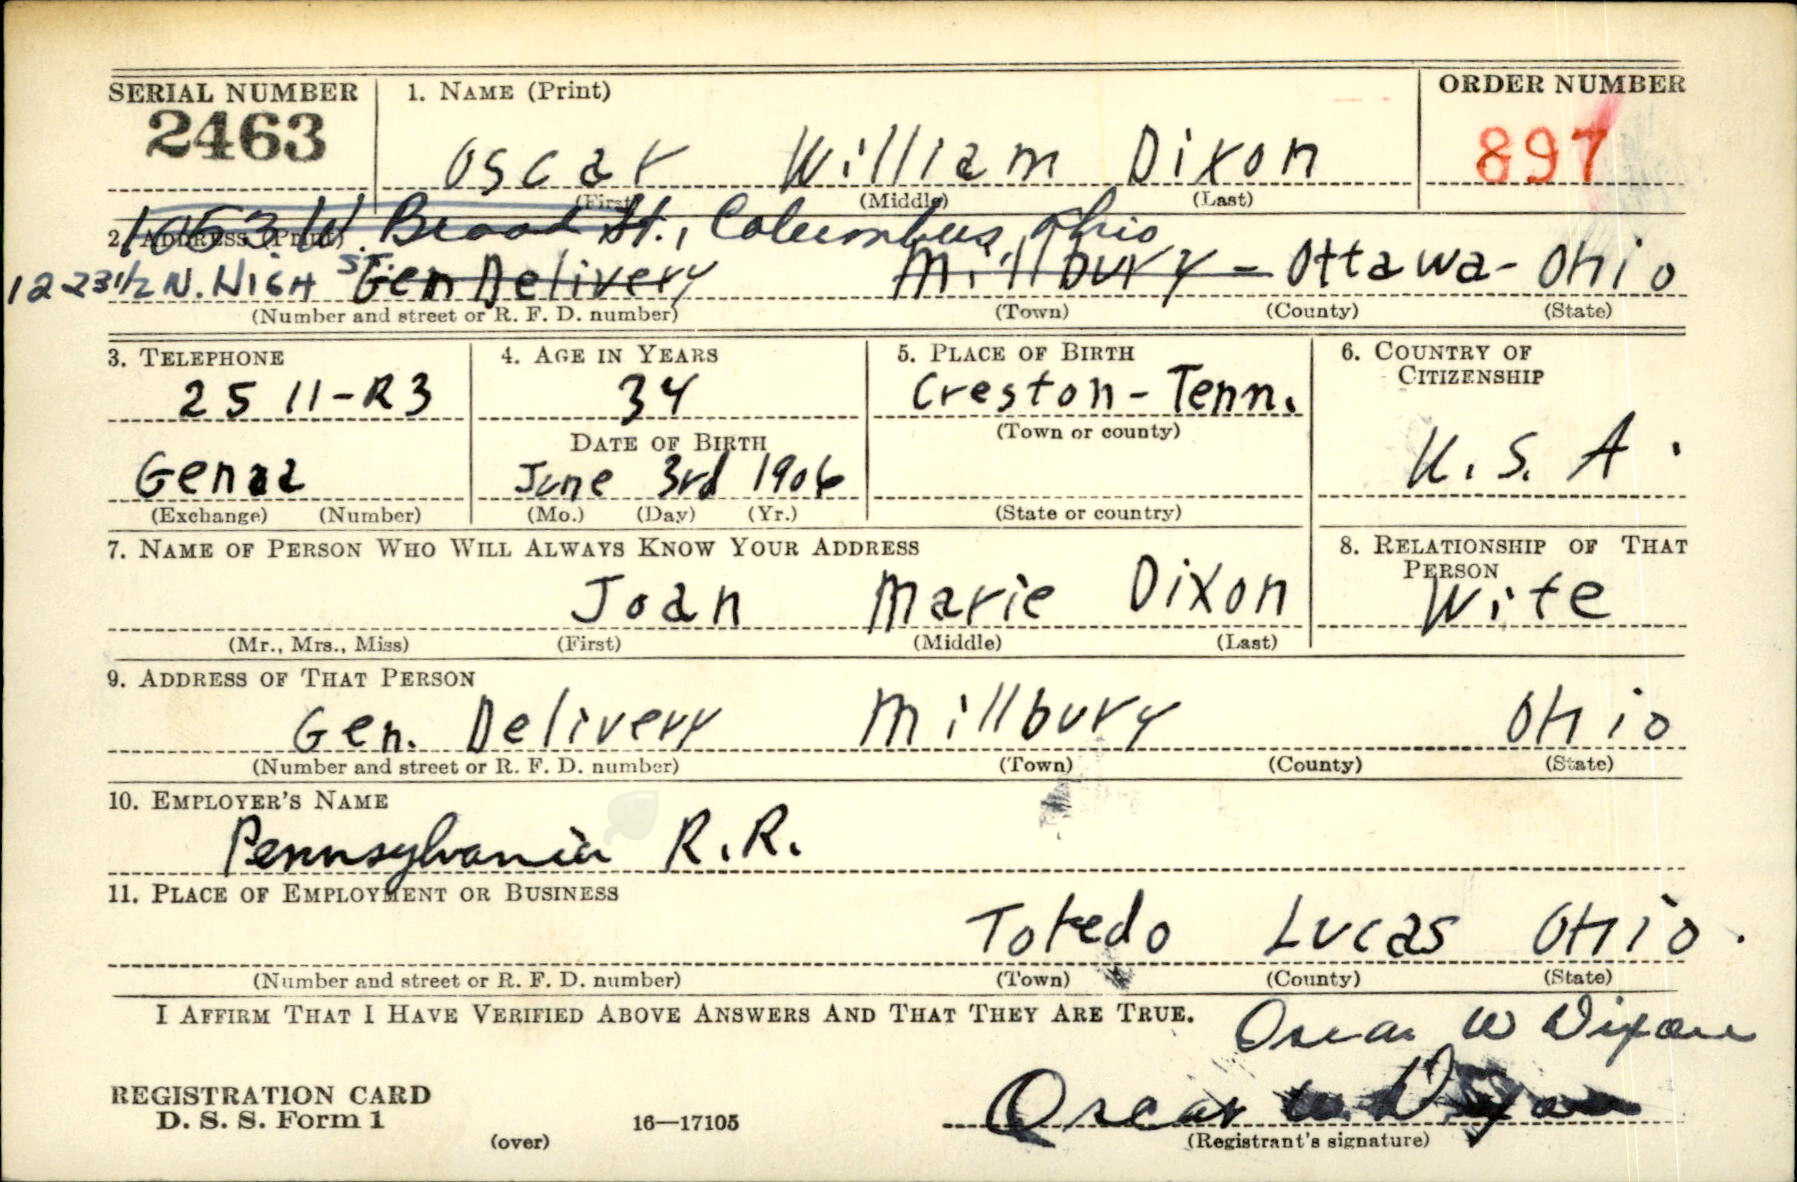 SERIAL NUMBER 1. NAME (Print) ORDER NUMBER
2463 Oscar William Dixon 897
(First) (Middle) (Last)
1063 W. Broad St., Columbus, Ohio
2. ADDRESS (Print)
1223 1/2 N. HIGH ST. Gen Delivery Millbury - Ottawa - Ohio
(Number and street or R. F. D. number) (Town) (County) (State)
3. TELEPHONE 4. AGE IN YEARS 5. PLACE OF BIRTH 6. COUNTRY OF
CITIZENSHIP
2511-R3 34 Creston - Tenn.
DATE OF BIRTH (Town or county)
Genoa June 3rd 1906 U.S.A.
(Exchange) (Number) (Mo.) (Day) (Yr.) (State or country)
7. NAME OF PERSON WHO WILL ALWAYS KNOW YOUR ADDRESS 8. RELATIONSHIP OF THAT
PERSON
Joan Marie Dixon Wife
(Mr., Mrs., Miss) (First) (Middle) (Last)
9. ADDRESS OF THAT PERSON
Gen. Delivery Millbury Ohio
(Number and street or R. F. D. number) (Town) (County) (State)
10. EMPLOYER'S NAME
Pennsylvania R.R.
11. PLACE OF EMPLOYMENT OR BUSINESS
Toledo Lucas Ohio.
(Number and street or R. F. D. number) (Town) (County) (State)
I AFFIRM THAT I HAVE VERIFIED ABOVE ANSWERS AND THAT THEY ARE TRUE.
Oscar W Dixon
REGISTRATION CARD
D. S. S. Form 1 16—17105 Oscar W. Dixon
(over) (Registrant's signature)